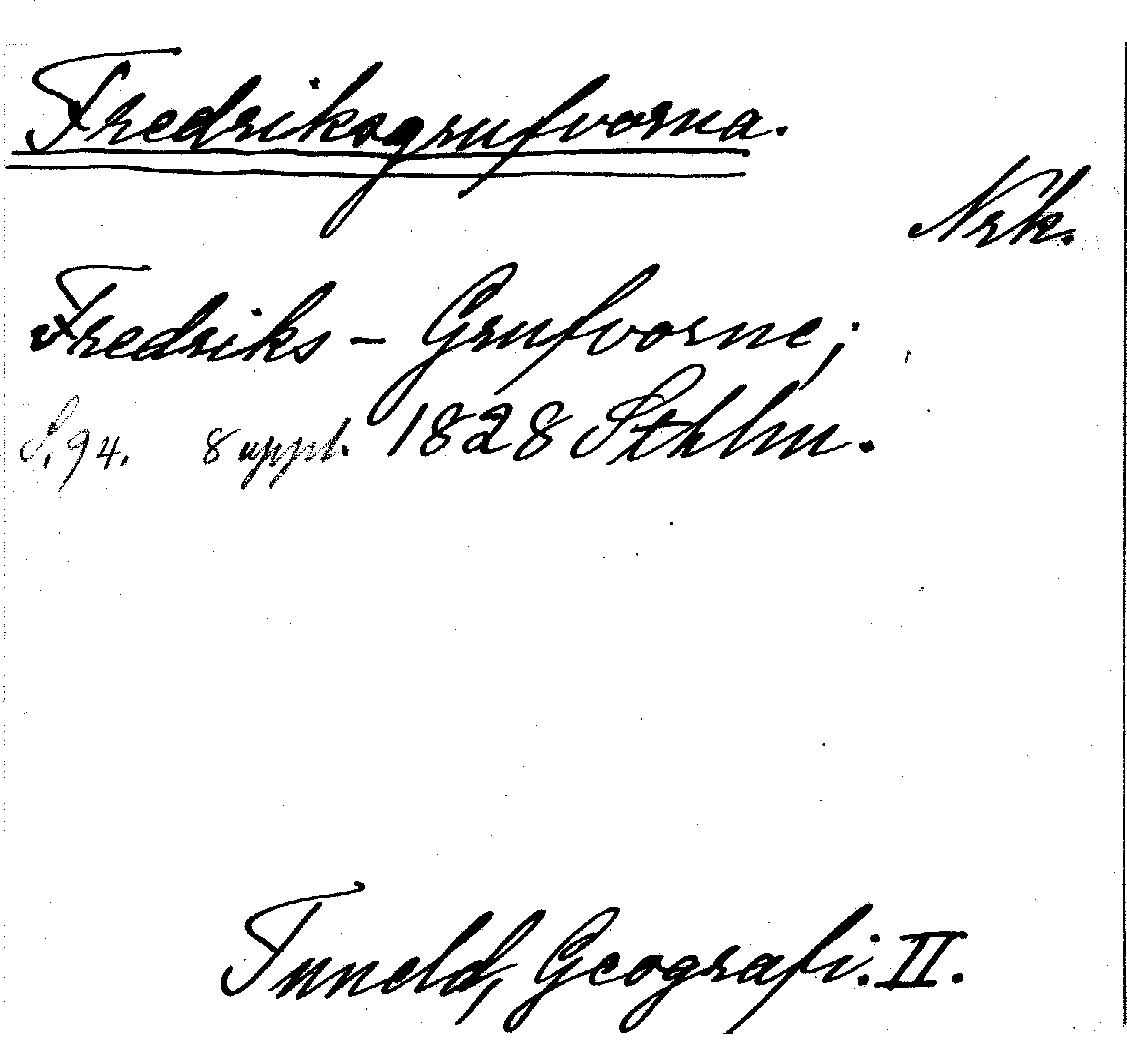 Fredriksgrufvorna.
Nrk.
Fredriks - Grufvorne;
S. 94. 8 uppl. 1828 Sthlm.
Tuneld, Geografi. II.